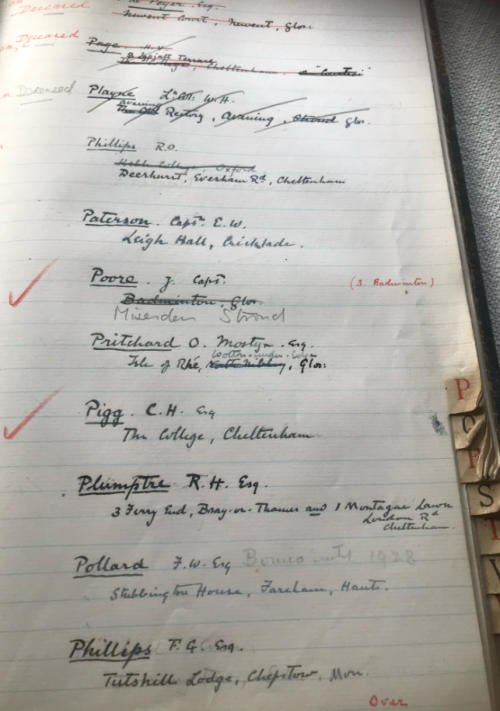 Deceased
Poyer. Esq.
Newent Court, Newent, Glos:
Deceased
Page H.V.
College, Cheltenham
Deceased
Playne Lt Col: W.H.
Avening
Rectory, Avening, Stroud Glos.
Phillips R.O.
Keble College Oxford
Deerhurst, Evesham Rd, Cheltenham
Paterson. Captn. E.W.
Leigh Hall, Cricklade.
Poore. J. Capt. (S. Badminton)
Badminton, Glos.
Miserden Stroud
Pritchard O. Mostyn. Esq.
Wotton-under-Edge
Isle of Rhé, North Nibley, Glos:
Pigg. C.H. Esq
The College, Cheltenham
Plumptre R.H. Esq.
3 Ferry End, Bray-on-Thames and 1 Montague Lawn
London Rd
Cheltenham.
Pollard F.W. Esq 1928
Stubbington House, Fareham, Hants.
Phillips F.G. Esq.
Tutshill Lodge, Chepstow, Mon.
Over
P
S
T